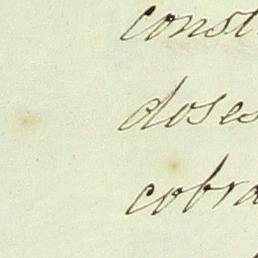 const
doses
cobra